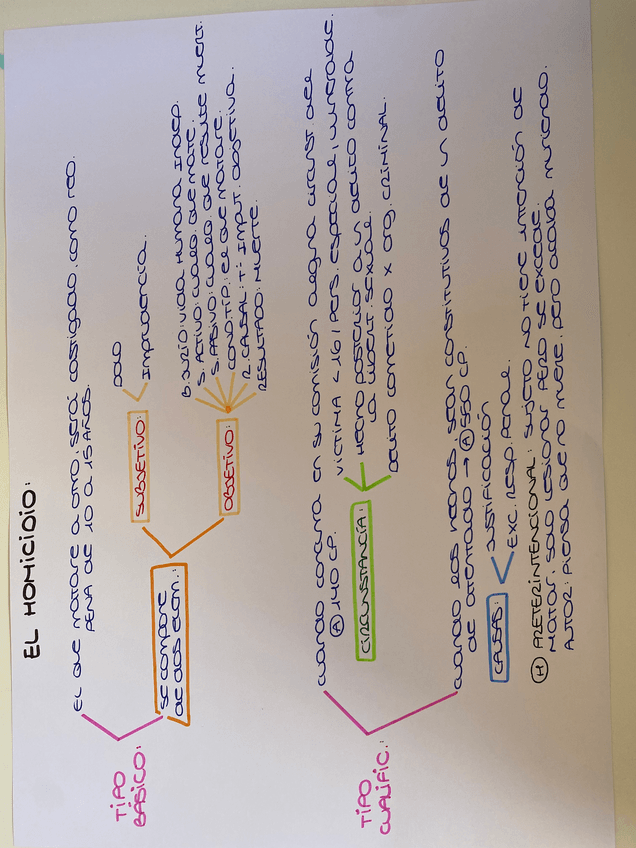 EL HOMICIDIO:
TIPO
BÁSICO:
EL QUE MATARE A OTRO, SERÁ CASTIGADO, COMO REO.
PENA DE 10 A 15 AÑOS.
SE COMPONE
DE DOS ELEM.:
SUBJETIVO:
DOLO
IMPRUDENCIA.
OBJETIVO:
B. JURÍD: VIDA HUMANA INDEP.
S. ACTIVO: CUALQ. QUE MATE.
S. PASIVO: CUALQ. QUE RESULTE MUERT.
COND. TIP.: EL QUE MATARE.
R. CAUSAL: Tª IMPUT. OBJETIVA.
RESULTADO: MUERTE.
TIPO
CUALIFIC.:
CUANDO CONCURRA EN SU COMISIÓN ALGUNA CIRCUNST. DEL
(A) 140 CP.
CIRCUNSTANCIA:
VÍCTIMA < 16 / PERS. ESPECIAL, VULNERABLE.
HECHO POSTERIOR A UN DELITO CONTRA
LA LIBERT. SEXUAL
DELITO COMETIDO X ORG. CRIMINAL.
CUANDO LOS HECHOS SEAN CONSTITUTIVOS DE UN DELITO
DE ATENTADO → (A) 550 CP.
CAUSAS:
JUSTIFICACIÓN
EXC. RESP. PENAL.
(H) PRETERINTENCIONAL: SUJETO NO TIENE INTENCIÓN DE
MATAR, SOLO LESIONAR PERO SE EXCEDE.
AUTOR: PIENSA QUE NO MUERE, PERO ACABA MURIENDO.